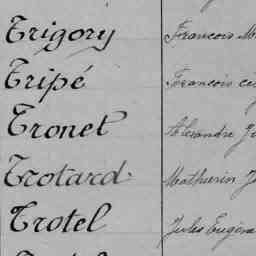 Trigory François
Tripé François
Tronet Alexandre
Trotard Mathurin
Trotel Jules Eugène